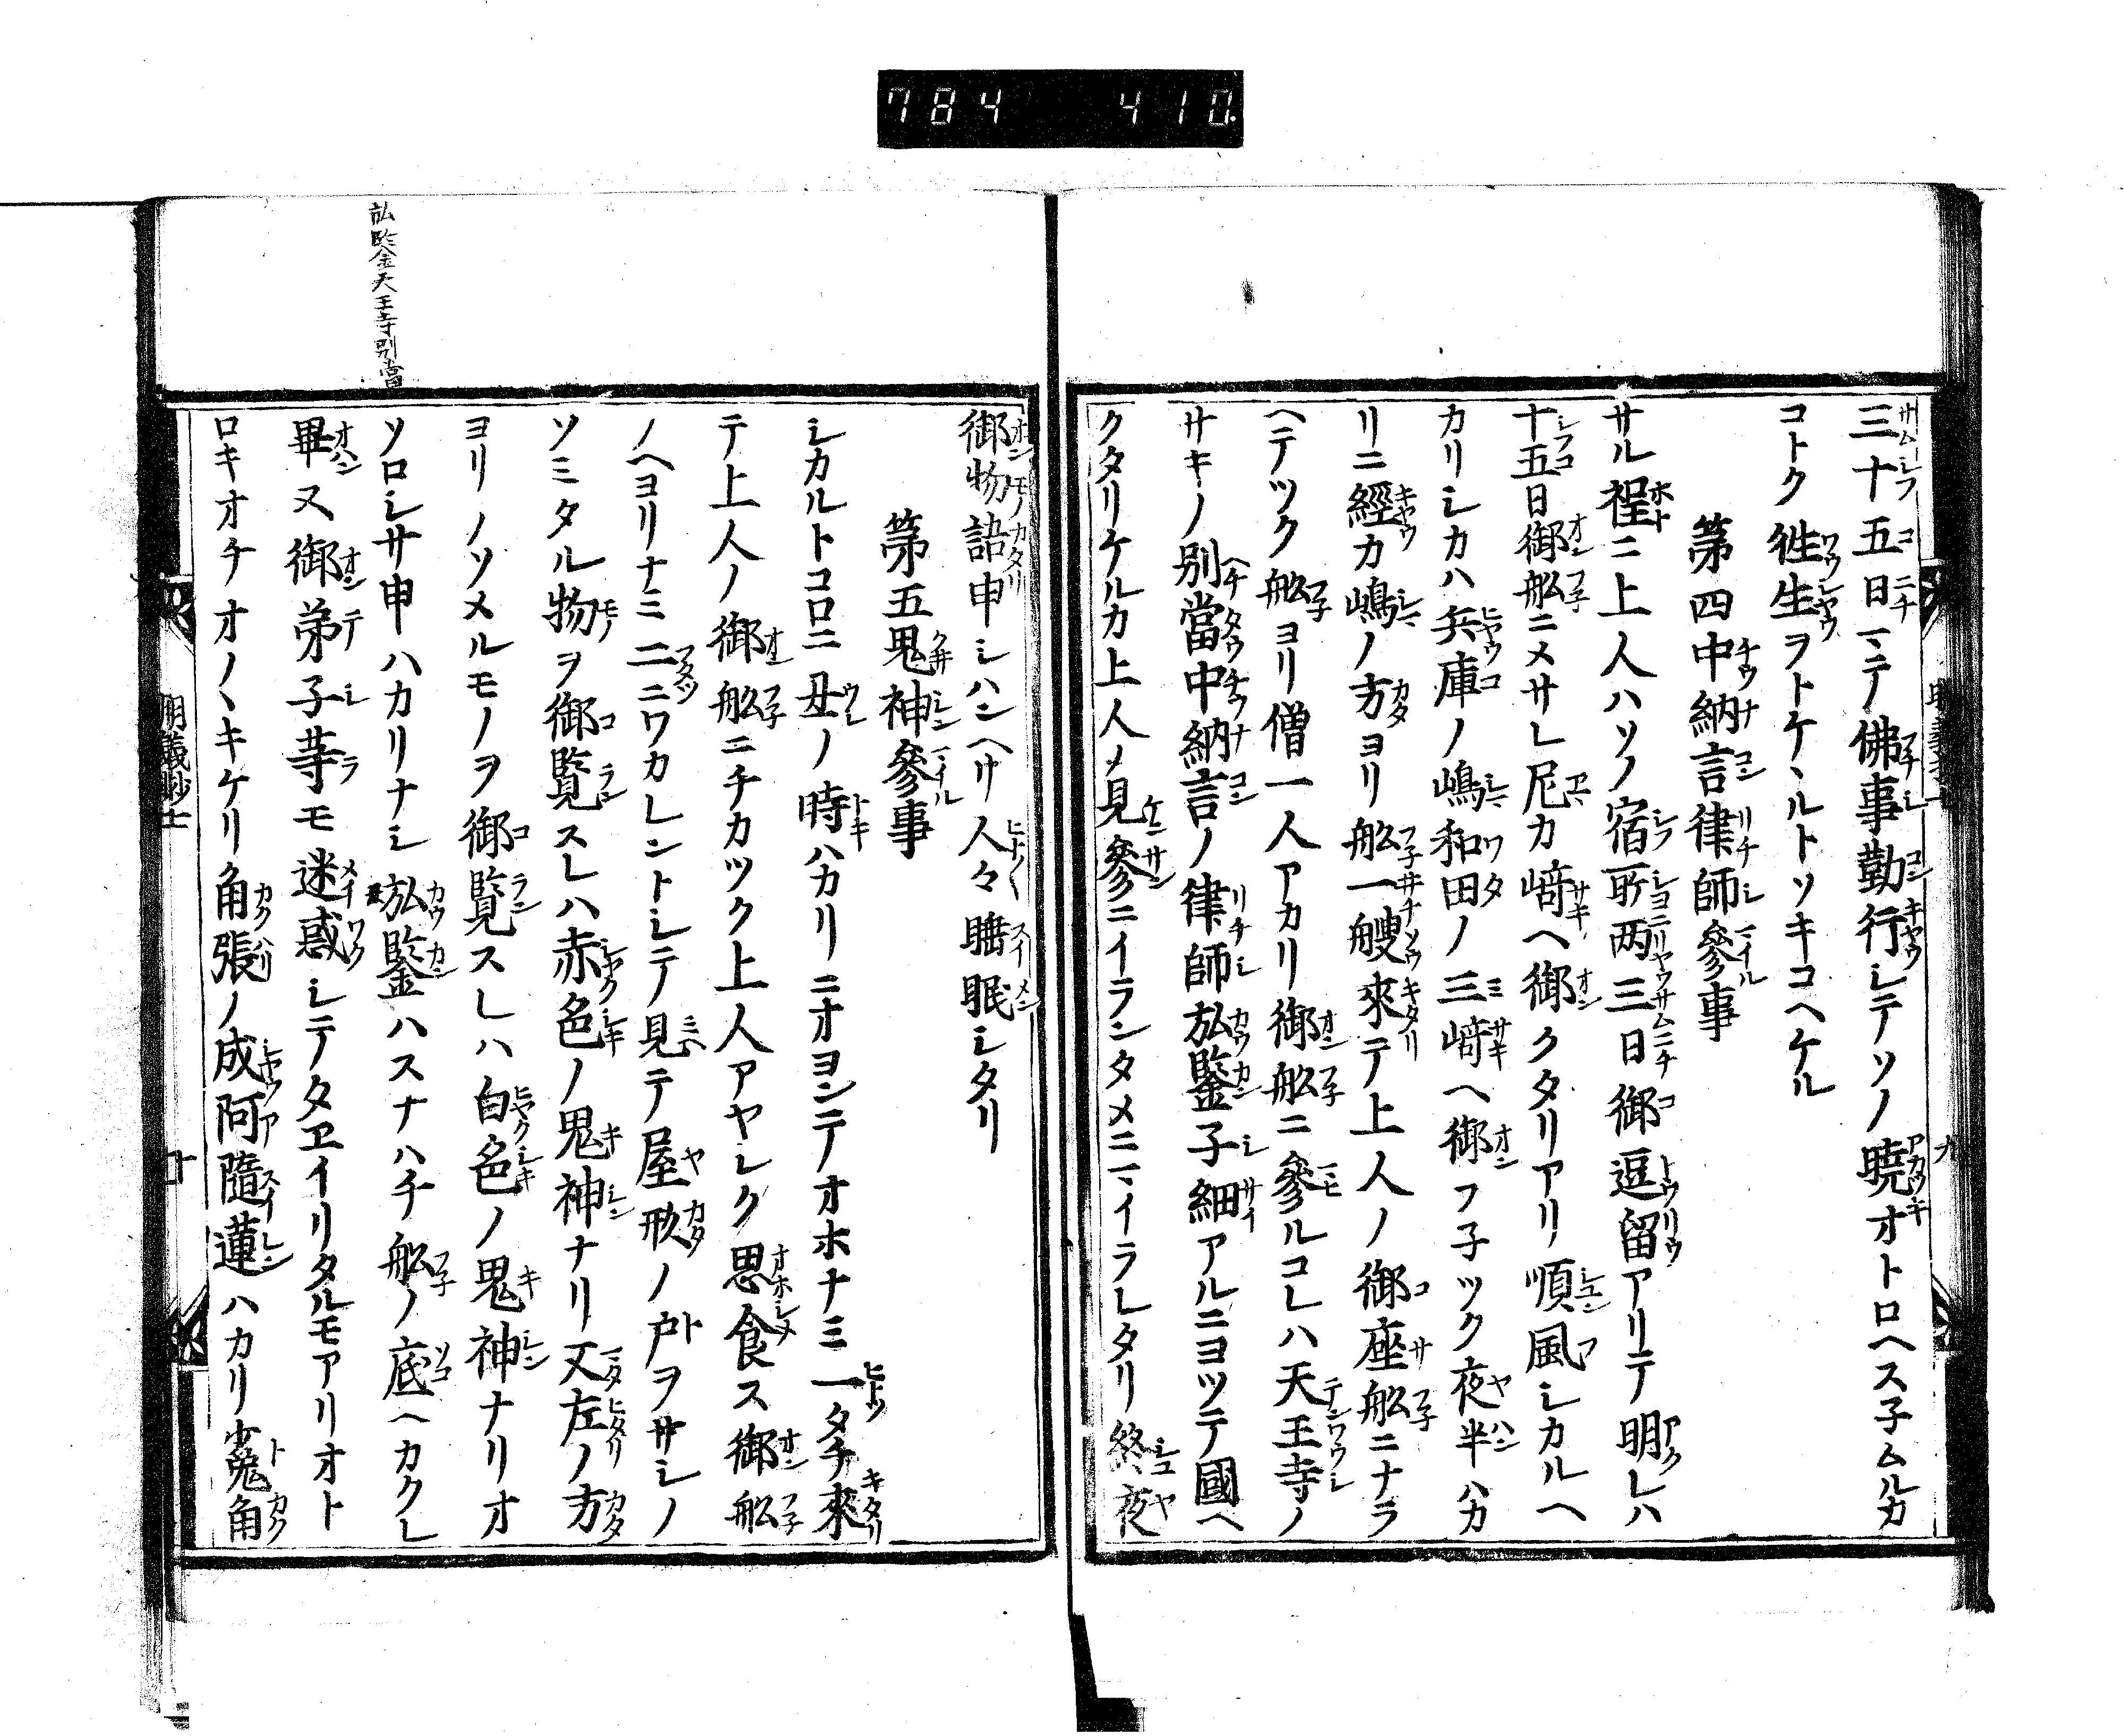 784 410.
三十五日マテノ佛事勤行シテソノ曉オトロヘス子ムルカ
コトク徃生ヲトケヽルトソキコヘケル
第四中納言律師參事
サル程ニ上人ハソノ宿所两三日御逗留アリテ明レハ
十五日御舩ニメサレ尼カ﨑ヘ御クタリアリ順風シカルヘ
カリシカハ兵庫ノ嶋和田ノ三﨑ヘ御フ子ツク夜半ハカ
リニ經カ嶋ノ方ヨリ舩一艘來テ上人ノ御座舩ニナラ
ヘテツク舩ヨリ僧一人アカリ御舩ニ參ルコレハ天王寺ノ
サキノ別當中納言ノ律師㳒鑒子細アルニヨツテ國ヘ
クタリケルカ上人メ見參ニイランタメニマイラレタリ終夜
御物語申シハンヘリ人々睡眠シタリ
第五鬼神參事
シカルトコロニ丑ノ時ハカリニオヨンテオホナミ一タチ來
テ上人ノ御舩ニチカツク上人アヤシク思食ス御舩
ノヘヨリナミ二ニワカレントシテ見テ屋形ノ戸ヲサシノ
ソミタル物ヲ御覽スレハ赤色ノ鬼神ナリ又左ノ方
ヨリノソメルモノヲ御覽スレハ白色ノ鬼神ナリオ
ソロシサ申ハカリナシ㳒鑒ハスナハチ舩ノ底ヘカクレ
畢又御弟子等モ迷惑シテタヱイリタルモアリオト
ロキオチオノヽキケリ角張ノ成阿隨蓮ハカリ少兎角
㳒鑒天王寺別當
明義抄七
十